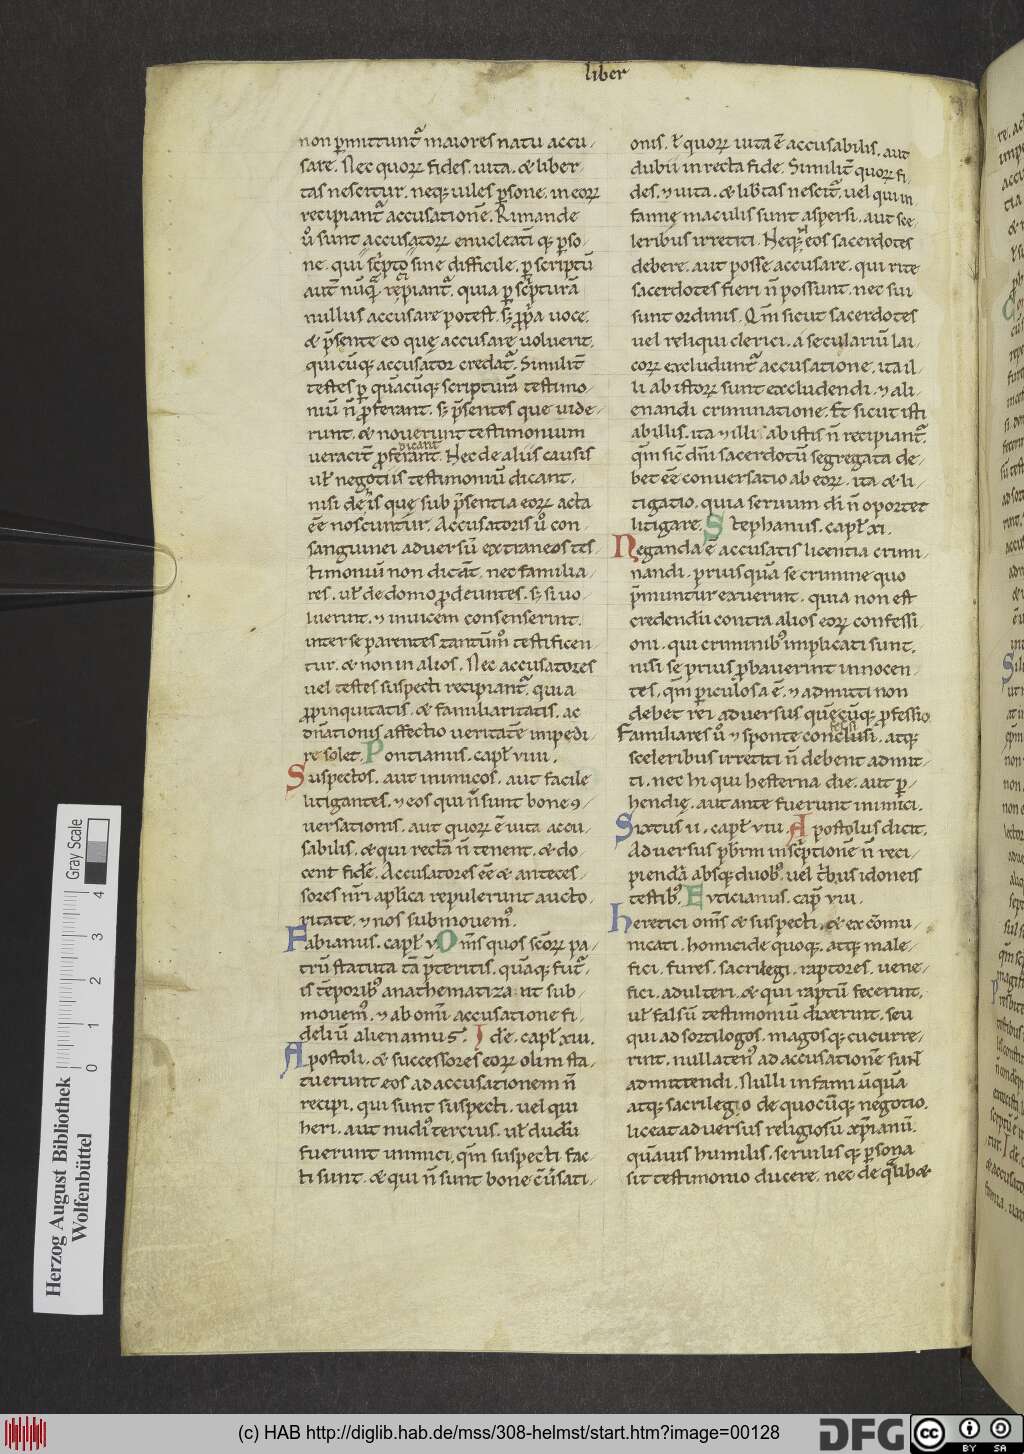 liber
non p̄mittunt᷑ maiores natu accu-
sare. Nec quoꝝ fides. uita. & liber
tas nescitur. neq; uiles p̄sone. in eoꝝ
recipiant᷑ accusationē. Rimande
ů sunt accusatoꝝ enucleati q; p̄so-
ne. qui sc̄pto sine difficile. ꝑ scriptū
aut nūq̄ᷓ recipiant᷑. quia ꝑ sc̄pturā
nullus accusare potest. s; ꝓpria uoce.
& p̄sente eo quę accusarę uoluerit.
qui cūq; accusator credat᷑. Similit̄
testes ꝑ quācūq; scripturā testimo-
niū n̄ ꝓferant. s; p̄sentes que uide-
runt. & nouerunt testimonium
dicant
ueracit̄ proferant. Hec de aliis causis
uł negotiis testimoniū dicant.
nisi de is quę sub p̄sentia eoꝝ acta
ēē noscuntur. Accusatoris ů con-
sanguinei aduersū extraneos tes-
timoniū non dicāt. nec familia-
res. uł de domo ꝓdeuntes. s; si uo-
luerint. ⁊ inuicem consenserint.
inter se parentes tantūm̊ testificen
tur. & non in alios. Nec accusatores
uel testes suspecti recipiant᷑. qui a
ꝓpinquitatis. & familiaritatis. ac
dn̄ationis affectio ueritatē impedi-
re solet. Pontianus. capł viiii.
Suspectos. aut inimicos. aut facile
litigantes. ⁊ eos qui n̄ sunt bone ꝯ-
uersationis. aut quoꝝ ē uita accu-
sabilis. & qui rectā n̄ tenent. & do-
cent fidē. Accusatores ēē & anteces-
sores nr̄i aplica repulerunt aucto-
ritate. ⁊ nos submouem᷒.
Fabianus. capł v. Om̄s quos sc̄oꝝ pa-
trū statuta tā p̄teritis. quāq; fut᷑-
is tēporib᷒ anathematiza nt sub-
mouem᷒. ⁊ ab omī accusatione fi-
deliū alienamus. Idē. capł xiii.
Apostoli. & successores eoꝝ olim sta-
tuerunt eos ad accusationem n̄
recipi. qui sunt suspecti. uel qui
heri. aut nudi᷒ tercius. uł dudū
fuerunt inimici. qm̄ suspecti fac-
ti sunt. & qui n̄ sunt bone cūsati-
onis. ł quoꝝ uita ē accusabilis. aut
dubii in recta fide. Similit̄ quoꝝ fi-
des. ⁊ uita. & lib̄tas nescit᷑. uel qui in-
famię maculis sunt aspersi. aut sce-
leribus irretiti. Neq; eos sacerdotes
debere. aut posse accusare. qui rite
sacerdotes fieri n̄ possunt. nec sui
sunt ordinis. Qm̄ sicut sacerdotes
uel reliqui clerici. a seculariū lai-
coꝝ excludunt᷑ accusatione. ita il-
li ab istoꝝ sunt excludendi. ⁊ ali-
enandi criminatione. Et sicut isti
ab illis. ita ⁊ illi ab istis n̄ recipiant᷑.
qm̄ sic dn̄i sacerdotū segregata de-
bet ēē conuersatio ab eoꝝ. ita & li-
tigatio. quia seruum di̅ n̄ oportet
litigare. Stephanus. capł xi.
Neganda ē accusatis licentia crimi-
nandi. priusquā se crimine quo
p̄muntur exuerint. quia non est
credendū contra alios eoꝝ confessi-
oni. qui criminib᷒ implicati sunt.
nisi se prius ꝓbauerint innocen-
tes. qm̄ ꝑiculosa ē. ⁊ admitti non
debet rei aduersus quēcūq; ꝓfessio
Familiares ů ⁊ sponte conclusi. atq;
sceleribus irretiti n̄ debent admit-
ti. nec hi qui hesterna die. aut ꝑ-
hendie. aut ante fuerunt inimici.
Sixtus ii. capł viii. Apostolus dicit.
Aduersus p̄br̄m inscp̄tionē n̄ reci-
piendā absq; duob᷒. uel tribus idoneis
testib᷒. Euticianus. cap̄ viii.
Heretici om̄s & suspecti. & excōmu-
nicati. homicide quoq;. atq; male-
fici. fures. sacrilegi. raptores. uene-
fici. adulteri. & qui raptū fecerunt.
uł falsū testimoniū dixerint. seu
qui ad sortilogos. magosq; cucurre-
rint. nullaten᷒ ad accusationē sunt
admittendi. Nulli infami ūquā
atq; sacrilegio de quocūq; negotio.
liceat aduersus religiosū xp̄ianū.
quāuis humilis. seruilis q; ꝑsona
sit testimonio ducere. nec de q̄lib&
Herzog August Bibliothek
Wolfenbüttel
Gray Scale
0 1 2 3 4
(c) HAB http://diglib.hab.de/mss/308-helmst/start.htm?image=00128
DFG
cc BY SA